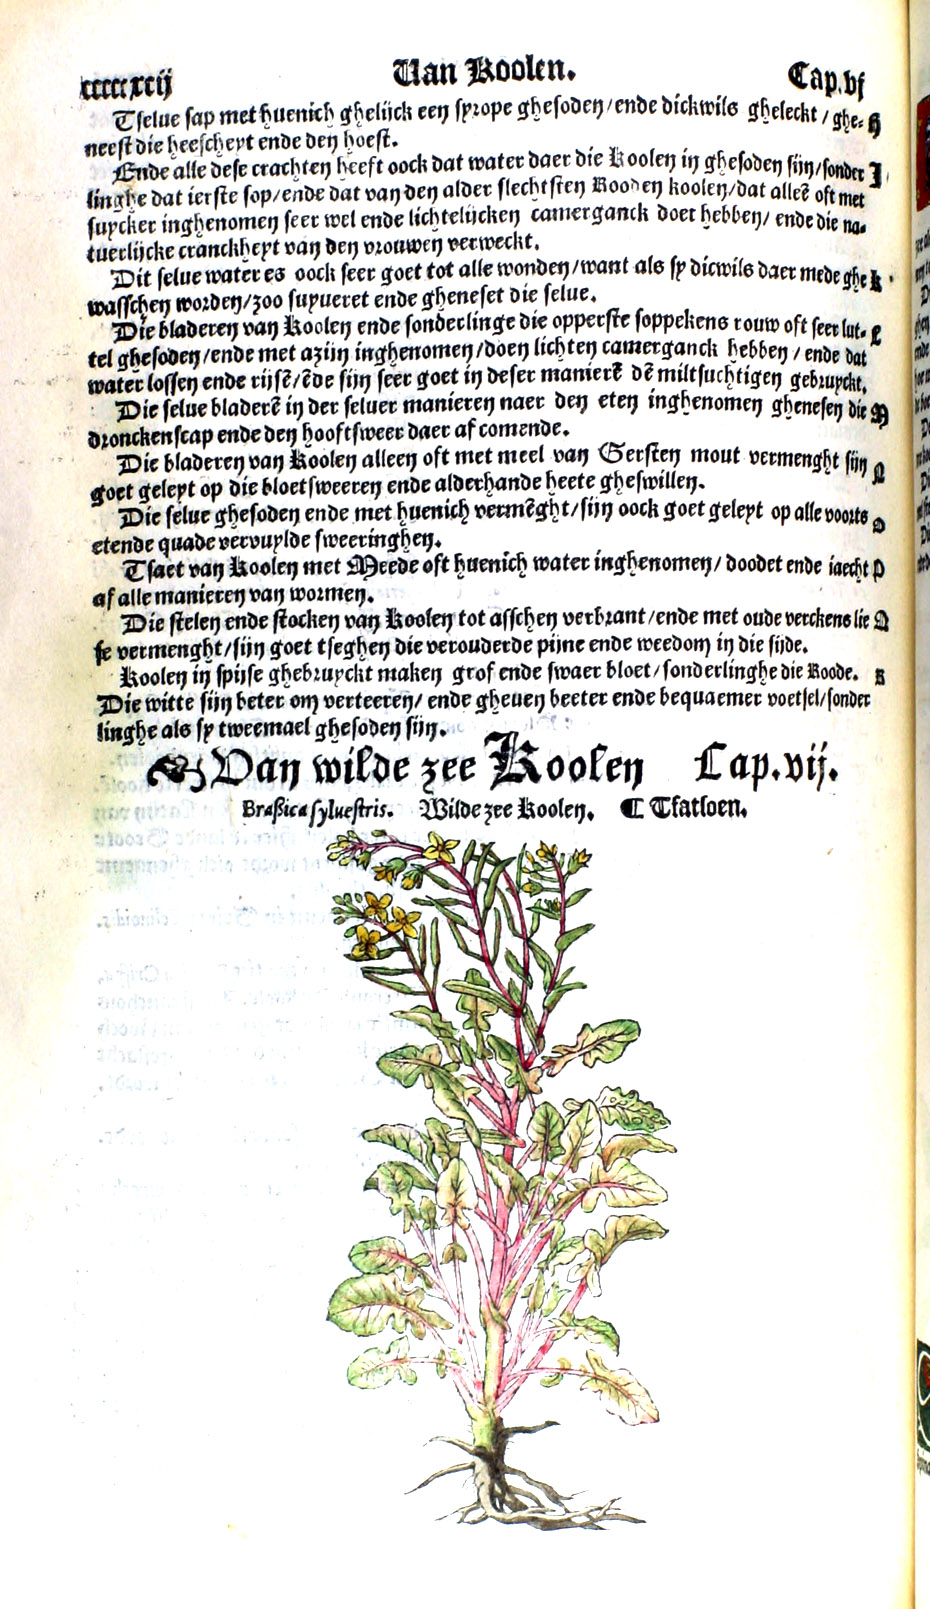 ccccxcij Van Koolen. Cap.vj
Tselue sap met huenich ghelijck een syrope ghesoden/ende dickwils gheleckt/ghe= H
neest die heescheyt ende den hoest.
Ende alle dese crachten heeft oock dat water daer die Koolen in ghesoden sijn/sonder I
linghe dat ierste sop/ende dat van den alder slechtsten Rooden koolen/dat alleē oft met
suycker inghenomen seer wel ende lichtelijcken camerganck doet hebben/ ende die na=
tuerlijcke cranckheyt van den vrouwen verweckt.
Dit selue water es oock seer goet tot alle wonden/want als sy dicwils daer mede ghe K
wasschen worden/zoo suyueret ende gheneset die selue.
Die bladeren van Koolen ende sonderlinge die opperste soppekens rouw oft seer lut= L
tel ghesoden/ende met azijn inghenomen/doen lichten camerganck hebben / ende dat
water lossen ende rijsē/ēde sijn seer goet in deser manierē dē miltsuchtigen gebruyckt.
Die selue bladerē in der seluer manieren naer den eten inghenomen ghenesen die M
dronckenscap ende den hooftsweer daer af comende.
Die bladeren van Koolen alleen oft met meel van Gersten mout vermenght sijn N
goet geleyt op die bloetsweeren ende alderhande heete gheswillen.
Die selue ghesoden ende met huenich vermēght/sijn oock goet geleyt op alle voorts O
etende quade vervuylde sweeringhen.
Tsaet van Koolen met Meede oft huenich water inghenomen/ doodet ende iaecht P
af alle manieren van wormen.
Die stelen ende stocken van Koolen tot asschen verbrant/ende met oude verckens lie Q
se vermenght/sijn goet tseghen die verouderde pijne ende weedom in die sijde.
Koolen in spijse ghebruyckt maken grof ende swaer bloet/sonderlinghe die Roode. R
Die witte sijn beter om verteeren/ ende gheuen beeter ende bequaemer voetsel/sonder
linghe als sy tweemael ghesoden sijn.
Van wilde zee Koolen Cap.vij.
Braßica syluestris. Wilde zee Koolen. ¶ Tfatsoen.